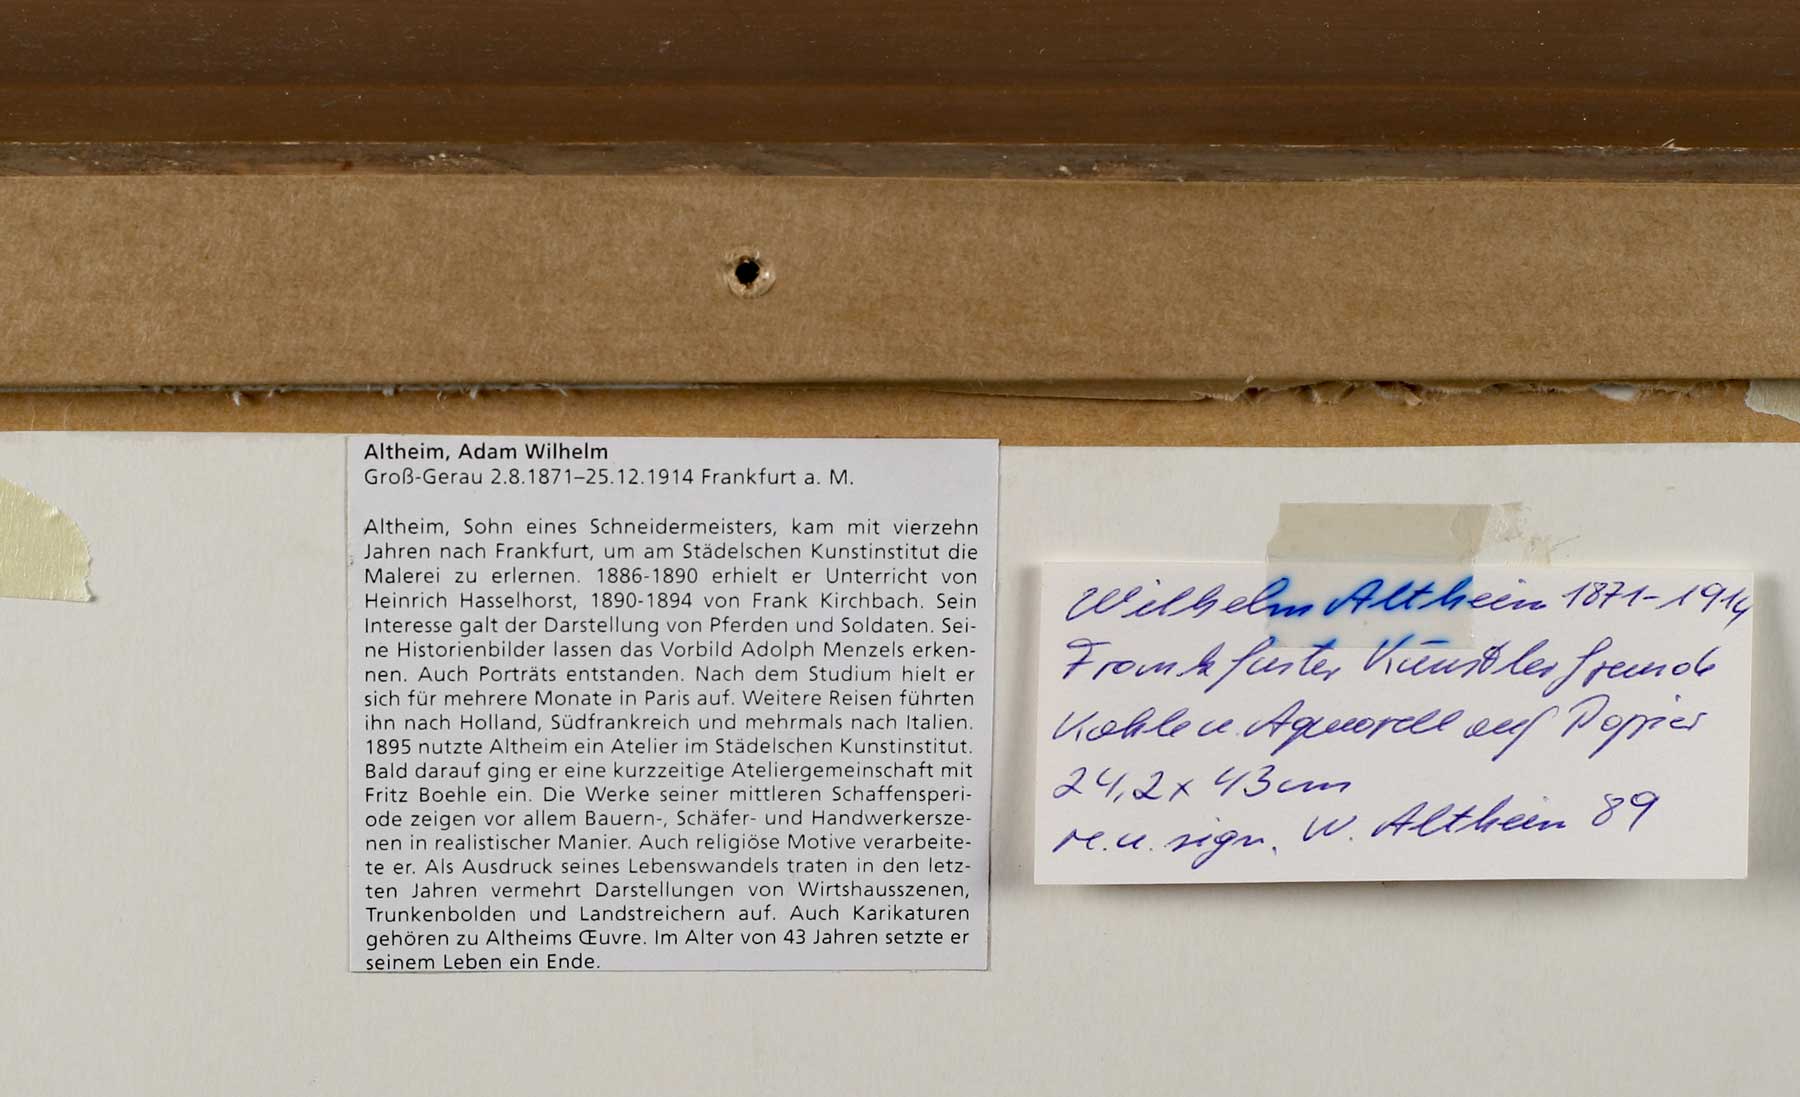 Altheim, Adam Wilhelm
Groß-Gerau 2.8.1871–25.12.1914 Frankfurt a. M.
Altheim, Sohn eines Schneidermeisters, kam mit vierzehn
Jahren nach Frankfurt, um am Städelschen Kunstinstitut die
Malerei zu erlernen. 1886-1890 erhielt er Unterricht von
Heinrich Hasselhorst, 1890-1894 von Frank Kirchbach. Sein
Interesse galt der Darstellung von Pferden und Soldaten. Sei-
ne Historienbilder lassen das Vorbild Adolph Menzels erken-
nen. Auch Porträts entstanden. Nach dem Studium hielt er
sich für mehrere Monate in Paris auf. Weitere Reisen führten
ihn nach Holland, Südfrankreich und mehrmals nach Italien.
1895 nutzte Altheim ein Atelier im Städelschen Kunstinstitut.
Bald darauf ging er eine kurzzeitige Ateliergemeinschaft mit
Fritz Boehle ein. Die Werke seiner mittleren Schaffensperi-
ode zeigen vor allem Bauern-, Schäfer- und Handwerkersze-
nen in realistischer Manier. Auch religiöse Motive verarbeite-
te er. Als Ausdruck seines Lebenswandels traten in den letz-
ten Jahren vermehrt Darstellungen von Wirtshausszenen,
Trunkenbolden und Landstreichern auf. Auch Karikaturen
gehören zu Altheims Œuvre. Im Alter von 43 Jahren setzte er
seinem Leben ein Ende.
Wilhelm Altheim 1871-1914
Frankfurter Künstlerfreunde
Kohle u. Aquarell auf Papier
24,2 x 43 cm
re. u. sign. W. Altheim 89